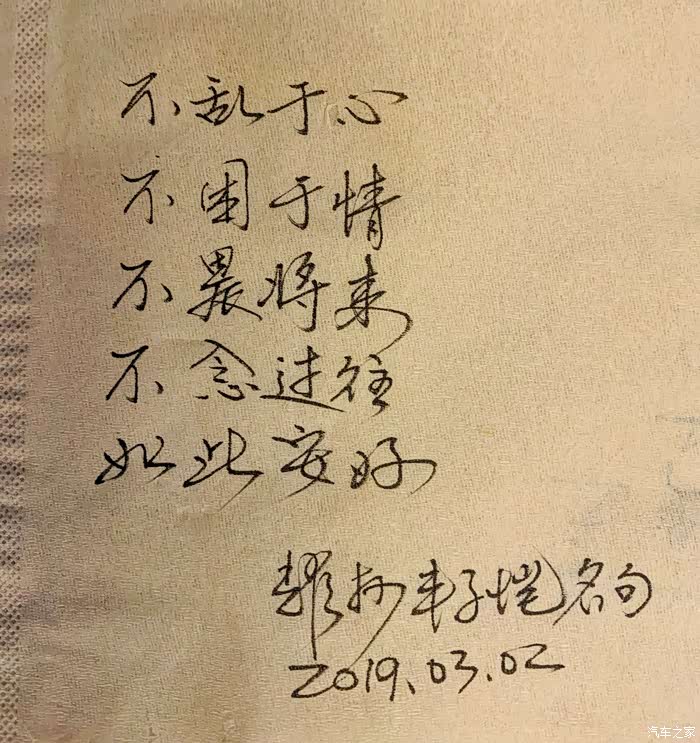 不乱于心
不困于情
不畏将来
不念过往
如此安好
抄丰子恺名句
2019.03.02
汽车之家